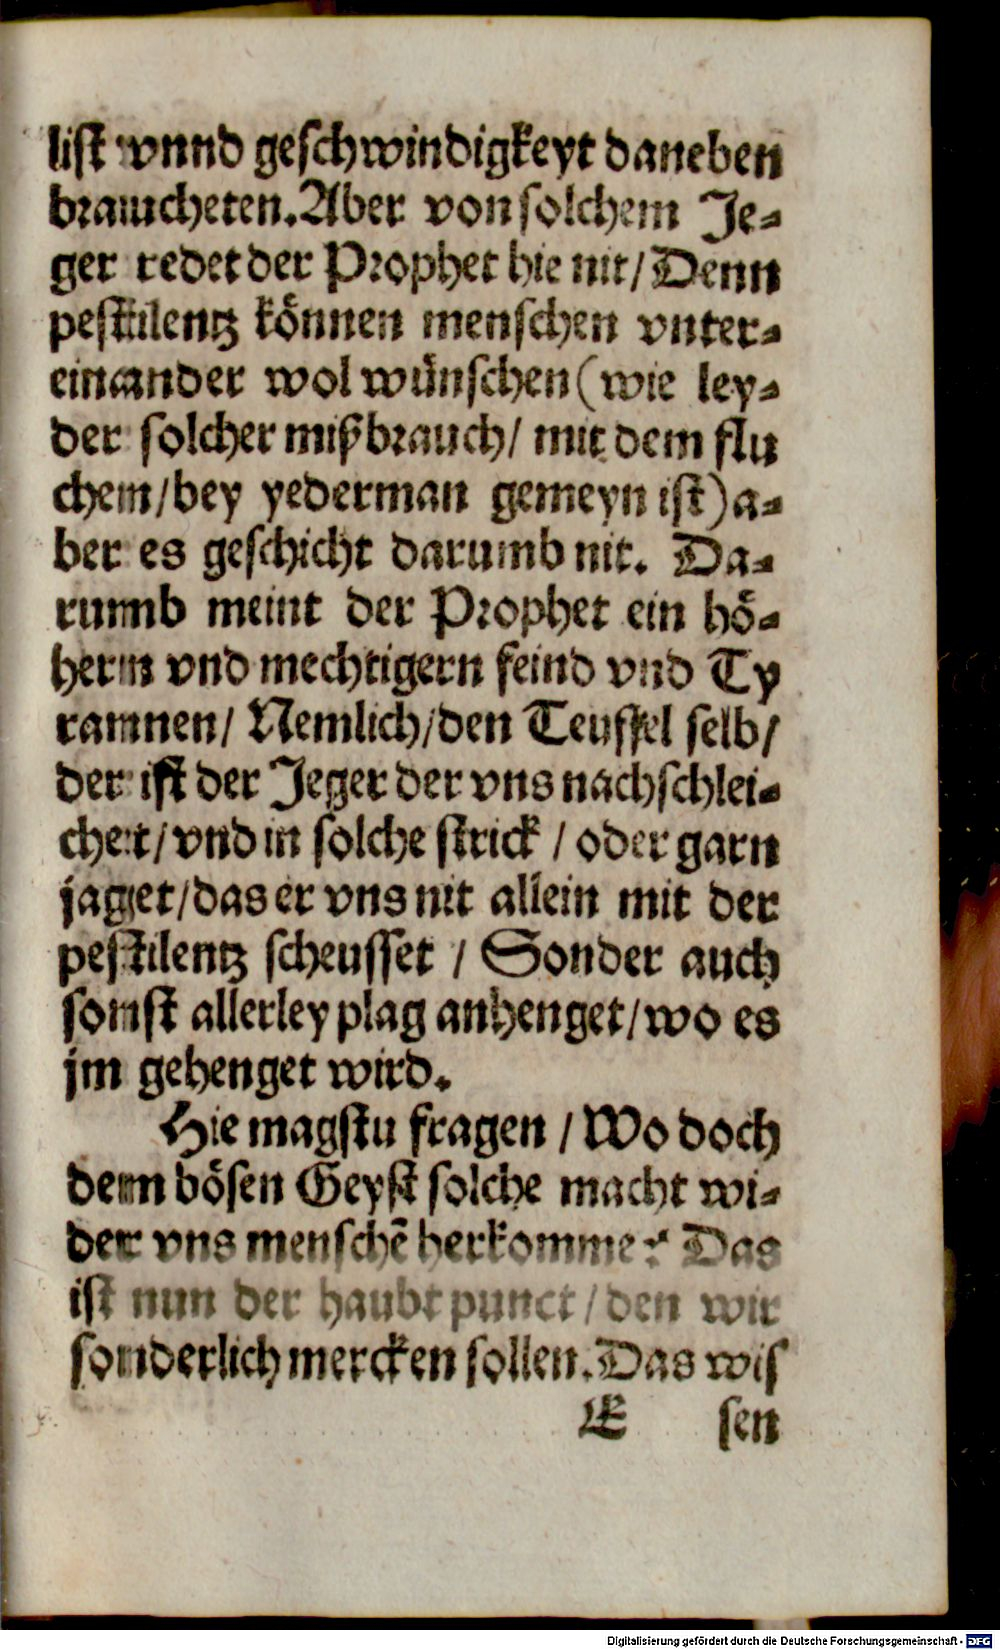 list vnnd geschwindigkeyt daneben
braucheten. Aber von solchem Je-
ger redet der Prophet hie nit / Denn
pestilentz können menschen vnter-
einander wol wünschen (wie ley-
der solcher mißbrauch / mit dem flu
chem / bey yederman gemeyn ist) a-
ber es geschicht darumb nit. Da-
rumb meint der Prophet ein hö-
hern vnd mechtigern feind vnd Ty
rannen / Nemlich / den Teuffel selb /
der ist der Jeger der vns nachschlei-
chet / vnd in solche strick / oder garn
jaget / das er vns nit allein mit der
pestilentz scheusset / Sonder auch
sonst allerley plag anhenget / wo es
jm gehenget wird.
Hie magstu fragen / Wo doch
dem bösen Geyst solche macht wi-
der vns menschē herkomme? Das
ist nun der haubt punct / den wir
sonderlich mercken sollen. Das wis
E sen
Digitalisierung gefördert durch die Deutsche Forschungsgemeinschaft - DFG